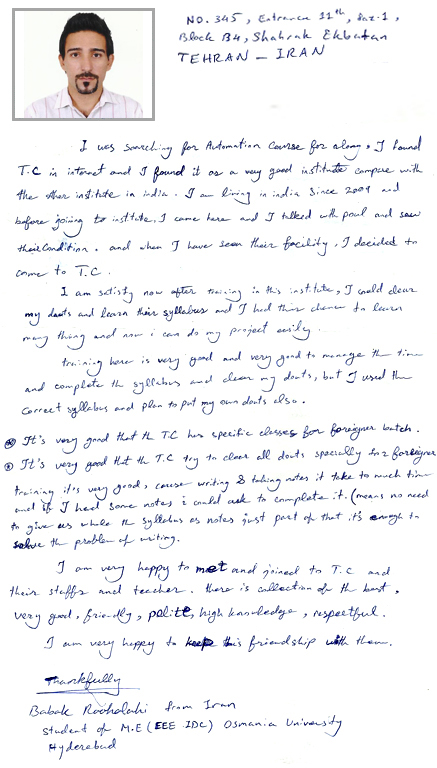 NO. 345, Entrance 11th, Faz-1,
Block B4, Shahrak Ekbatan
TEHRAN - IRAN
I was searching for Automation Course for along, I found
T.C in internet and I found it as a very good institute compare with
the other institute in india. I am living in india Since 2009 and
before joining to institute, I came here and I talked with paul and saw
their condition. and when I have seen their facility, I decided to
come to T.C.
I am satisfy now after training in this institute, I could clear
my douts and learn their syllabus and I had this chance to learn
many thing and now i can do my project easily.
training here is very good and very good to manage the time
and complete the syllabus and clear my douts, but I used the
correct syllabus and plan to put my own douts also.
It's very good that the T.C has specific classes for foreigner batch.
It's very good that the T.C try to clear all douts specially for foreigner
training it's very good, cause writing & taking notes it take to much time
and if I had some notes i could ask to complete it. (means no need
to give us whole the syllabus as notes just part of that it's enough to
solve the problem of writing.
I am very happy to met and joined to T.C and
their staffs and teacher. there is collection of the best,
very good, friendly, polite, high knowledge, respectful.
I am very happy to keep this friendship with them.
Thankfully
Babak Rooholahi from Iran
Student of M.E (EEE IDC) Osmania University
Hyderabad